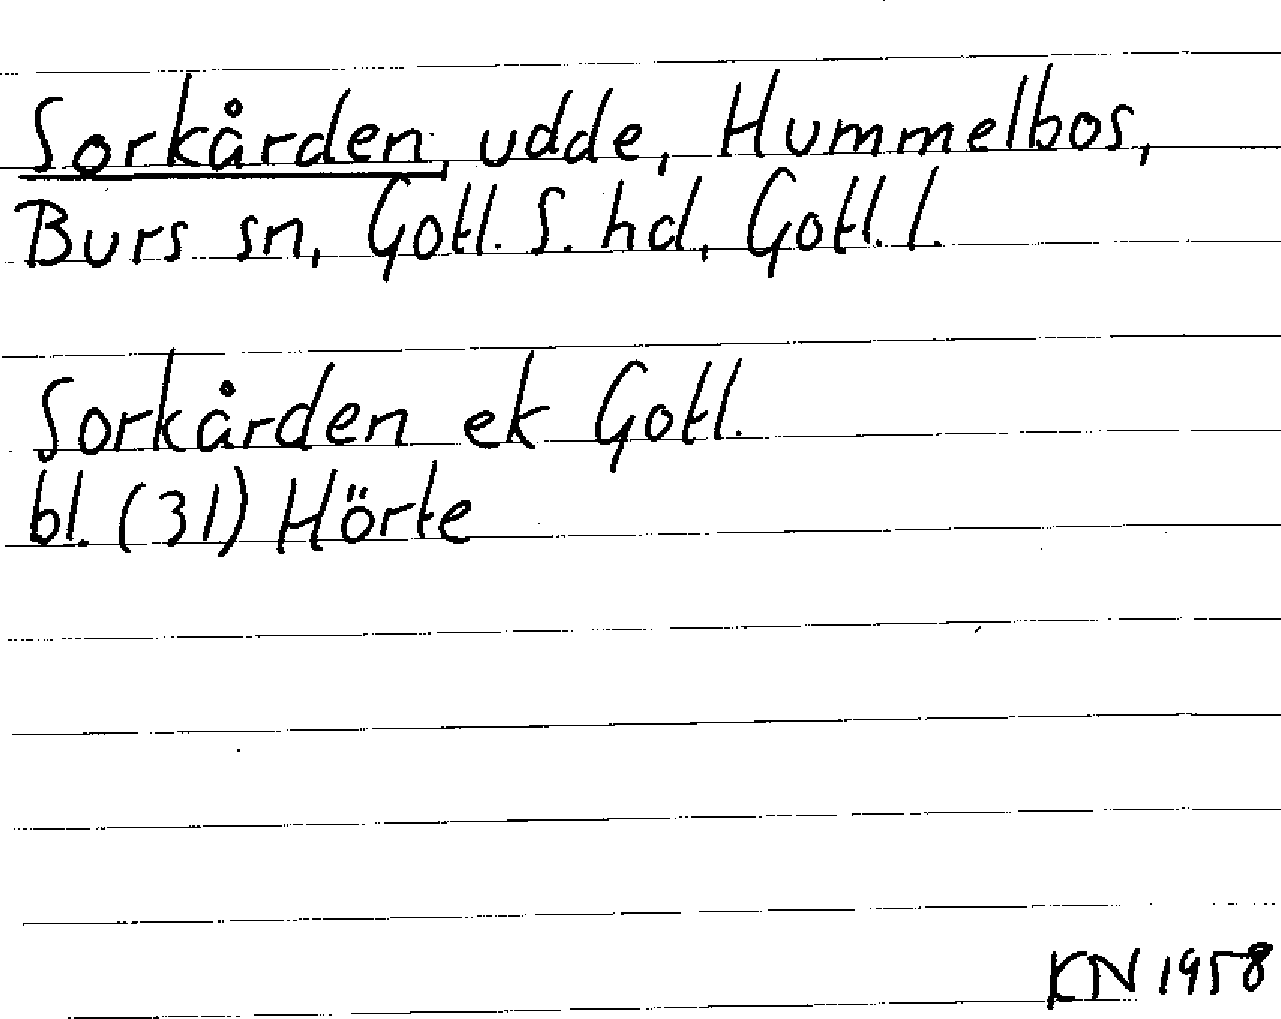 Sorkården, udde, Hummelbos,
Burs sn, Gotl. S. hd, Gotl. l.
Sorkården ek Gotl.
bl. (31) Hörte
KN 1958